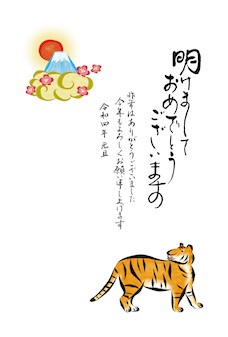 明けまして
おめでとう
ございます
昨年はありがとうございました
今年もよろしくお願い申し上げます
令和四年 元旦